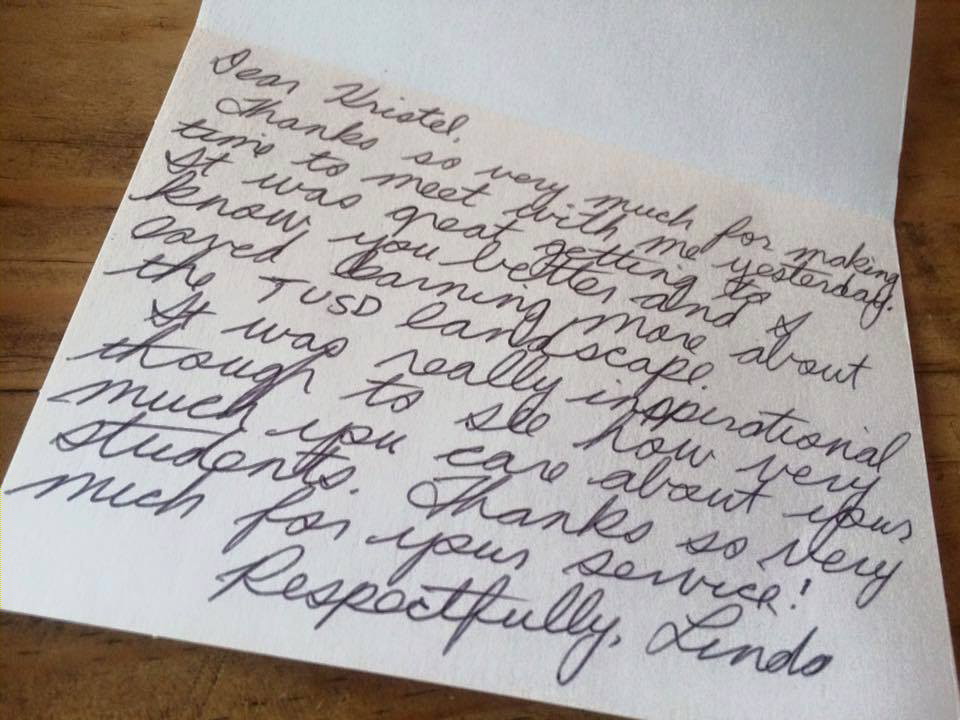 Dear Kristel,
Thanks so very much for making
time to meet with me yesterday.
It was great getting to
know you better and I
loved learning more about
the TUSD landscape.
It was really inspirational
though to see how very
much you care about your
students. Thanks so very
much for your service!
Respectfully, Linda